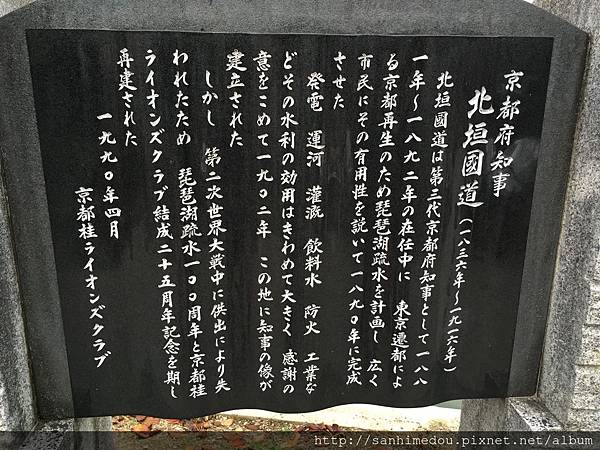 京都府知事
北垣國道（一八三六年～一九一六年）
北垣國道は第三代京都府知事として一八八
一年～一八九二年の在任中に　東京遷都によ
る京都再生のため琵琶湖疏水を計画し　広く
市民にその有用性を説いて一八九〇年に完成
させた
発電　運河　灌漑　飲料水　防火　工業な
どその水利の効用はきわめて大きく　感謝の
意をこめて一九〇二年　この地に知事の像が
建立された
しかし　第二次世界大戦中に供出により失
われたため　琵琶湖疏水一〇〇周年と京都桂
ライオンズクラブ結成二十五周年記念を期し
再建された
一九九〇年四月
京都桂ライオンズクラブ
http://sanhimedou.pixnet.net/album